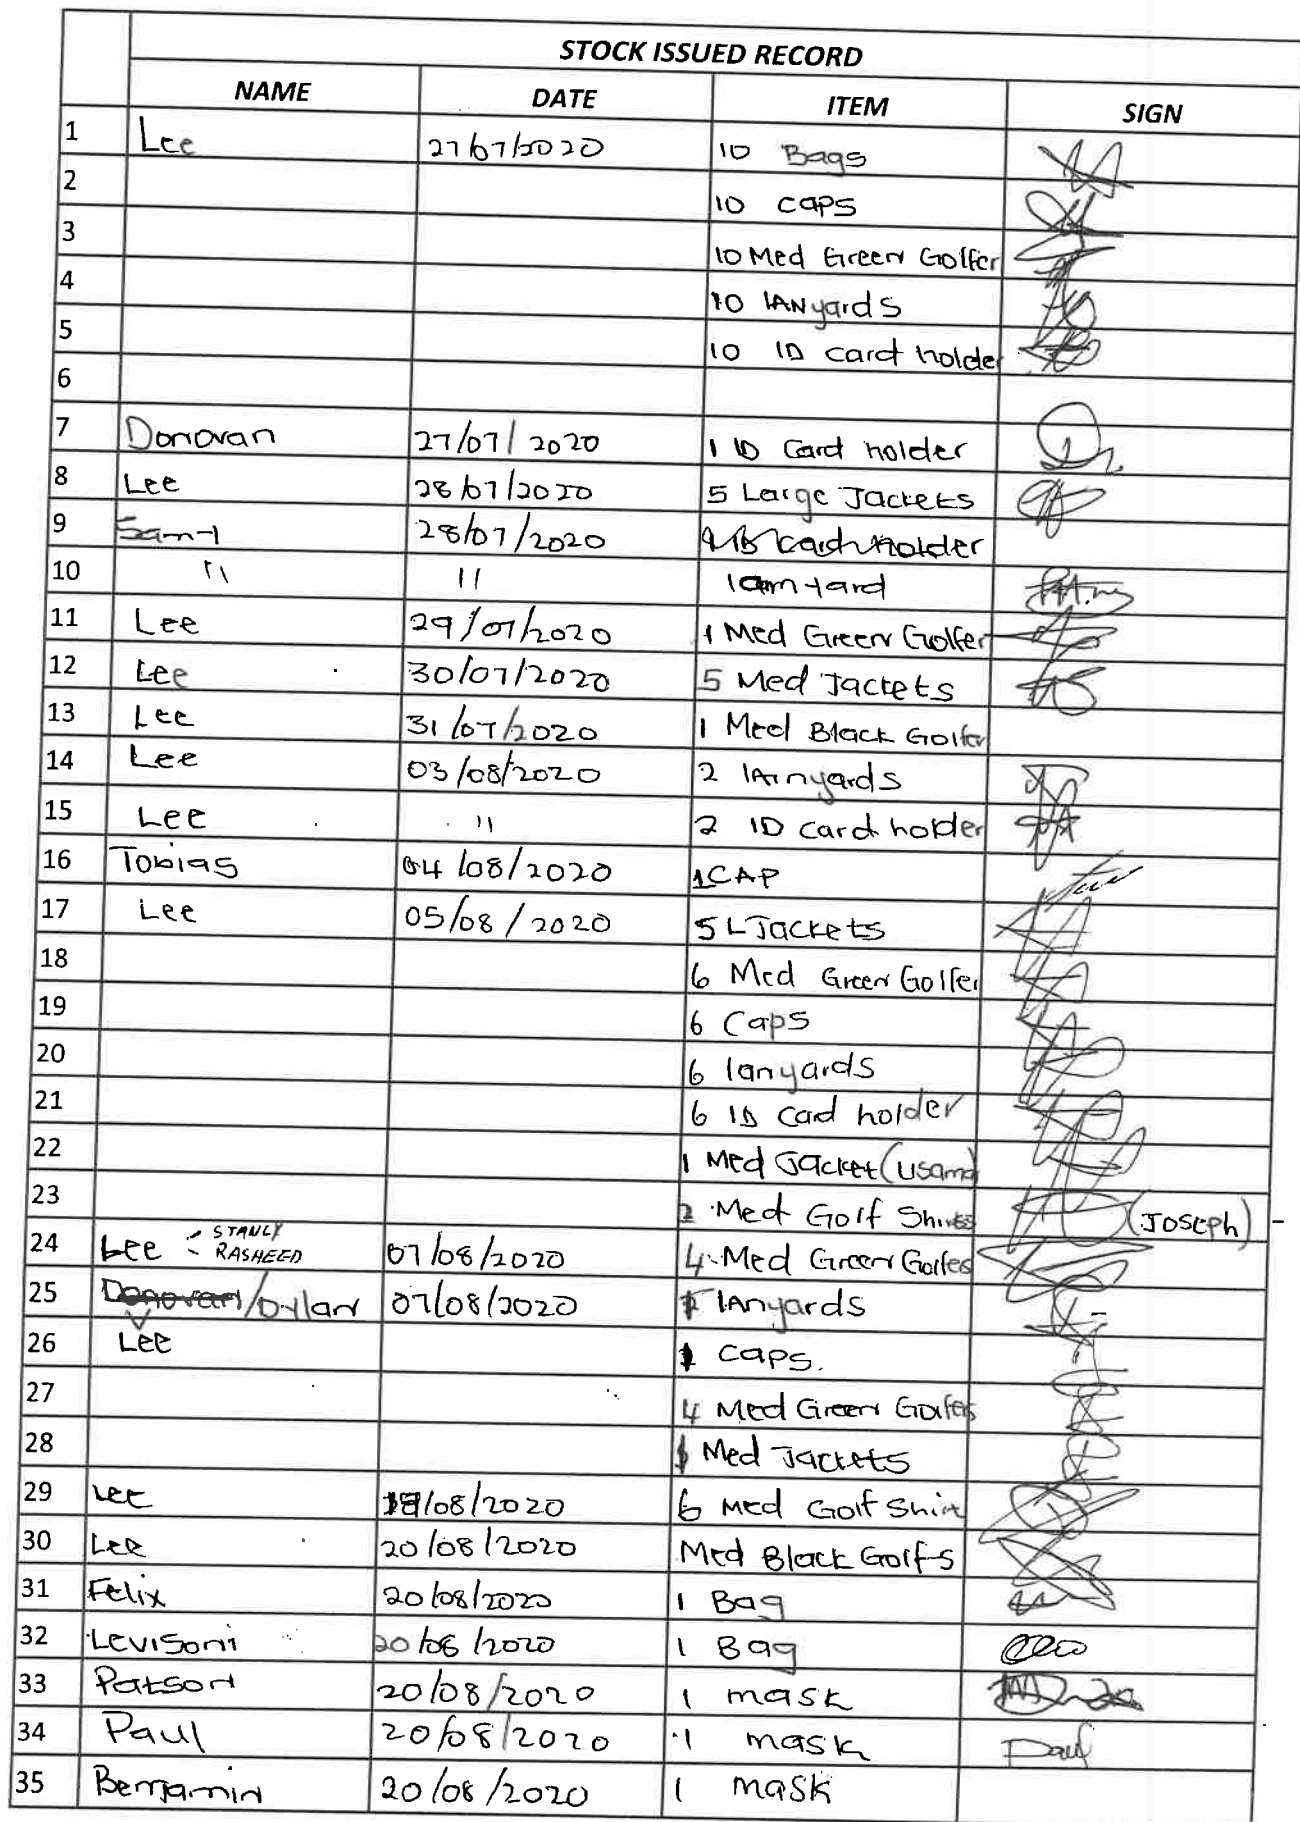 STOCK ISSUED RECORD
NAME DATE ITEM SIGN
1 Lee 27/07/2020 10 Bags
2 10 caps
3 10 Med Green Golfer
4 10 lANyards
5 10 ID card holder
6
7 Donovan 27/07/2020 1 ID Card holder
8 Lee 28/07/2020 5 Large Jackets
9 28/07/2020 Card holder
10 " "
11 Lee 29/07/2020 1 Med Green Golfer
12 Lee 30/07/2020 5 Med Jackets
13 Lee 31/07/2020 1 Med Black Golfer
14 Lee 03/08/2020 2 lArnyards
15 Lee " 2 ID card holder
16 Tobias 04/08/2020 1 CAP
17 Lee 05/08/2020 5 L Jackets
18 6 Med Green Golfer
19 6 Caps
20 6 lanyards
21 6 ID Card holder
22 1 Med Jacket (Usama)
23 2 Med Golf Shirts (Joseph) -
24 Lee - STANLY
- RASHEED 07/08/2020 4 Med Green Golfes
25 Donovan/Dylan 07/08/2020 lAnyards
26 Lee 1 caps.
27 4 Med Green Golfers
28 1 Med Jackets
29 Lee /08/2020 6 Med Golf Shirt
30 Lee 20/08/2020 Med Black Golf-s
31 Felix 20/08/2020 1 Bag
32 Levisoni 20/08/2020 1 Bag
33 Patson 20/08/2020 1 mask
34 Paul 20/08/2020 1 mask Paul
35 Benjamin 20/08/2020 1 mask